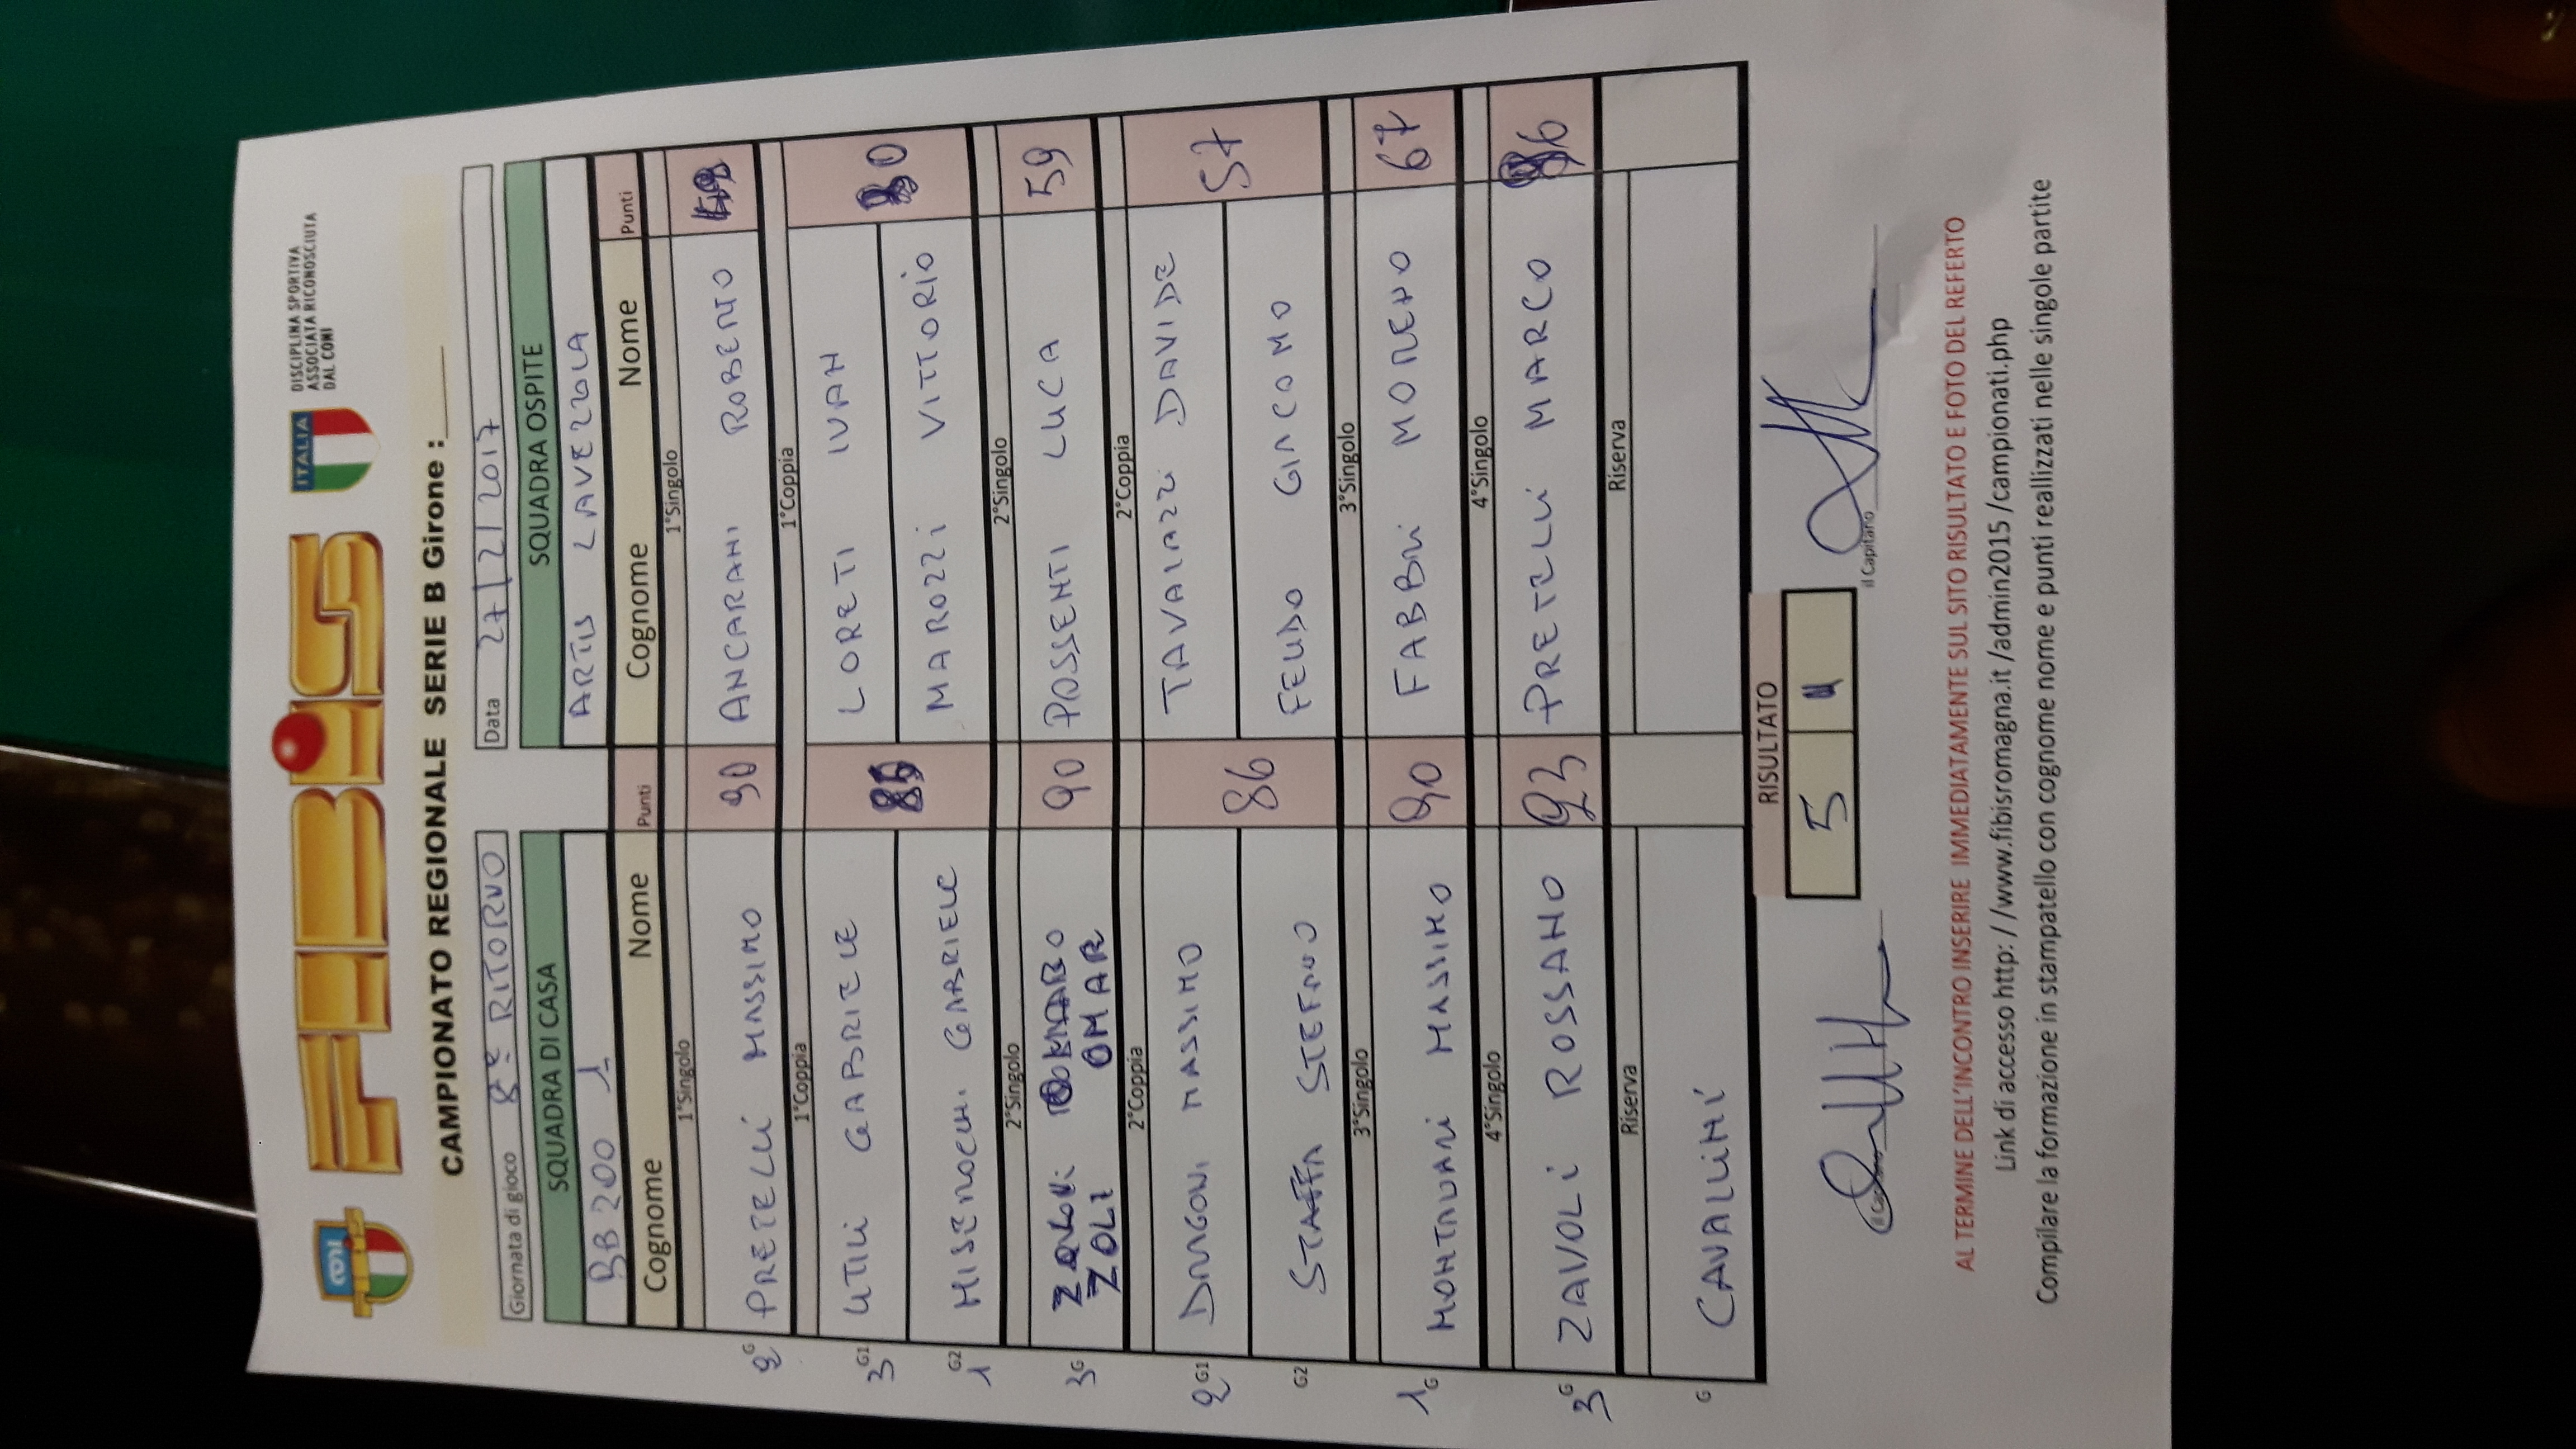 FIBiS
ITALIA
DISCIPLINA SPORTIVA
ASSOCIATA RICONOSCIUTA
DAL CONI
CAMPIONATO REGIONALE SERIE B Girone :
Giornata di gioco 8° RITORNO Data 27/2/2017
SQUADRA DI CASA SQUADRA OSPITE
BB 200 1 ARTIS LAVEZZOLA
Cognome Nome Punti Cognome Nome Punti
1°Singolo 1°Singolo
2 G PRETELLI MASSIMO 90 ANCARANI ROBERTO
1°Coppia 1°Coppia
3 G1 UTILI GABRIELE LORETI IVAN 80
1 G2 MISEROCCHI GABRIELE MAROZZI VITTORIO
2°Singolo 2°Singolo
3 G ZOLI OMAR 90 POSSENTI LUCA 59
2°Coppia 2°Coppia
2 G1 DRAGONI MASSIMO 86 TAVALAZZI DAVIDE 57
G2 STAFFA STEFANO FEUDO GIACOMO
3°Singolo 3°Singolo
1 G MONTANARI MASSIMO 90 FABBRI MORENO 67
4°Singolo 4°Singolo
3 G ZAVOLI ROSSANO 93 PRETELLI MARCO 86
Riserva Riserva
G CAVALLINI
RISULTATO
5 1
il Capitano il Capitano
AL TERMINE DELL'INCONTRO INSERIRE IMMEDIATAMENTE SUL SITO RISULTATO E FOTO DEL REFERTO
Link di accesso http: / /www.fibisromagna.it /admin2015 /campionati.php
Compilare la formazione in stampatello con cognome nome e punti reallizzati nelle singole partite